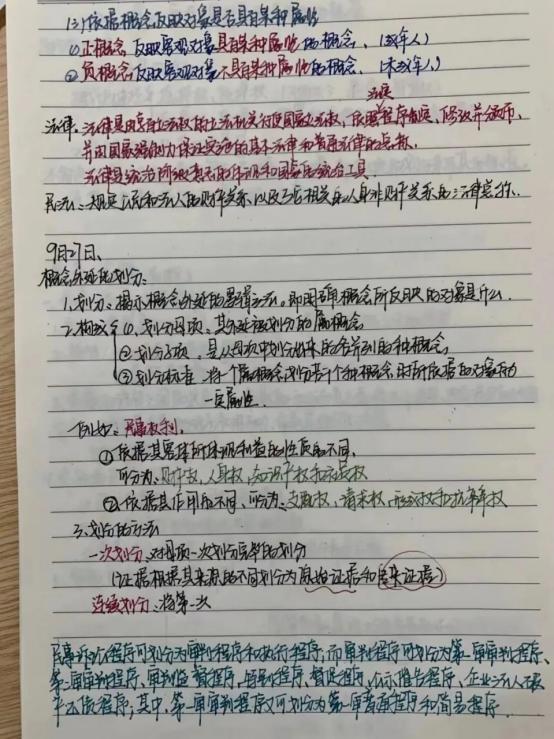 (3)依据概念反映对象是否具有某种属性
①正概念 反映客观对象具有某种属性的概念、(成年人)
②负概念 反映客观对象不具有某种属性的概念、(未成年人)
法定
法律:法律是由享有立法权的立法机关行使国家立法权,依照程序制定、修改并颁布,
并由国家强制力保证实施的基本法律和普通法律的总称.
法律是统治阶级意志的体现和国家的统治工具.
民法:规定公民和法人的财产关系,以及与它相关的人身非财产关系的法律总称.
9月27日、
概念外延的划分:
1.划分:揭示概念外延的逻辑方法。即明确概念所反映的对象是什么.
2.构成 ①.划分母项、其外延被划分的属概念
②划分子项,是从母项中划分出来的各并列的种概念
③划分标准 将一个属概念划分若干个种概念时所依据的对象的
一定属性.
例如:民事权利.
①依据其客体所体现利益的性质的不同,
可分为:财产权,人身权,知识产权和社员权
②依据其作用的不同、可分为:支配权、请求权、形成权和抗辩权
3.划分的方法
一次划分:对母项一次划分完毕的划分
(证据根据其来源的不同划分为原始证据和传来证据)
连续划分:将第一次
民事诉讼程序可划分为审判程序和执行程序,而审判程序可划分为第一审审判程序、
第二审审判程序、审判监督程序、特别程序、督促程序、公示催告程序、企业法人破
产还债程序;其中,第一审审判程序又可划分为第一审普通程序和简易程序.